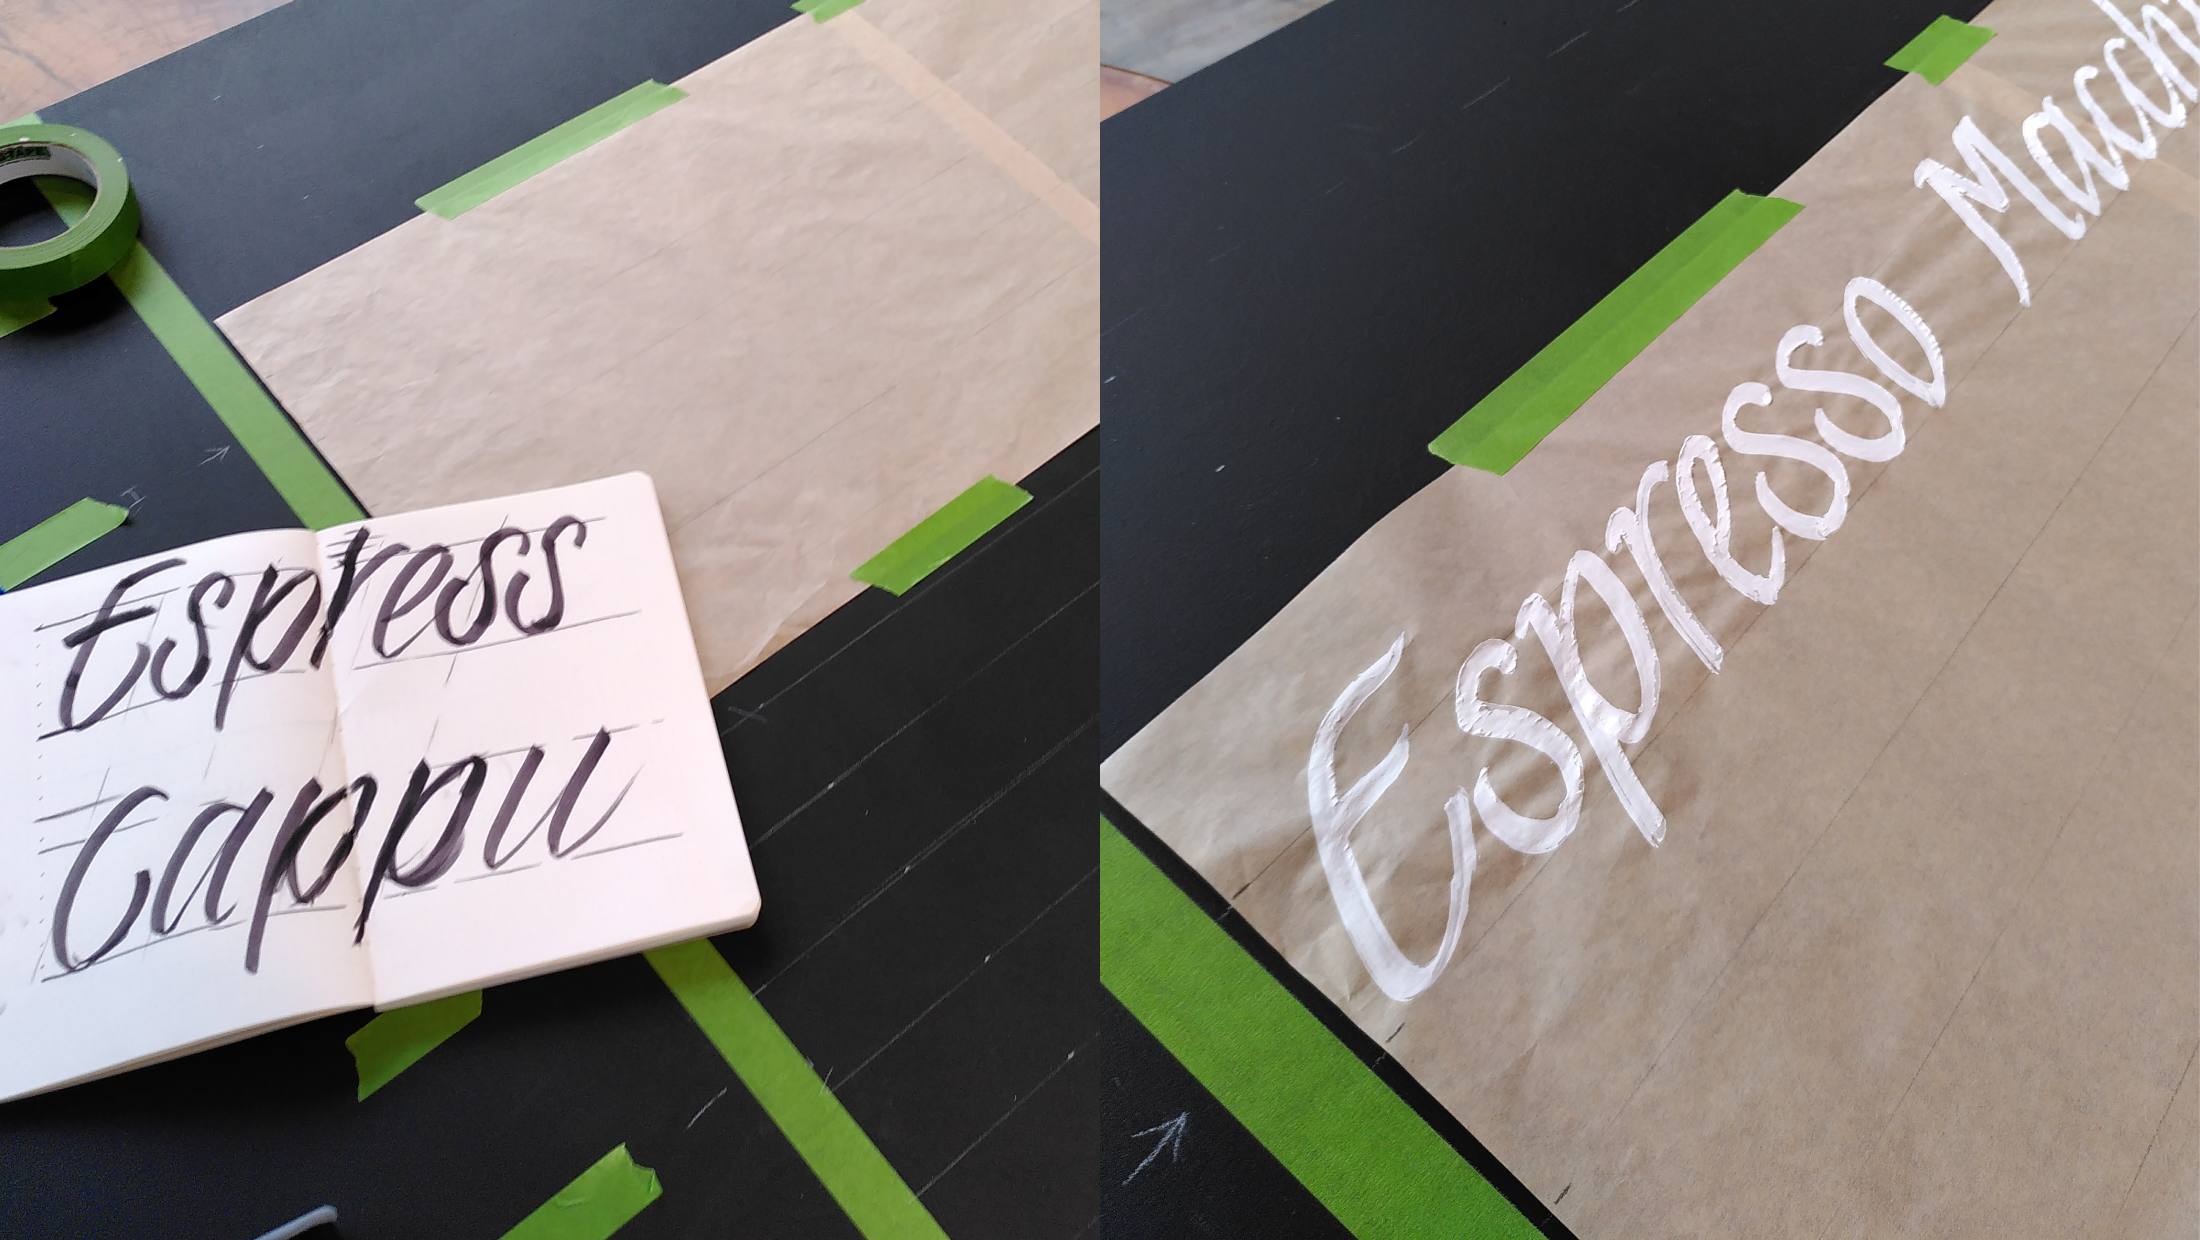 Espress
Cappu
Espresso Macchi